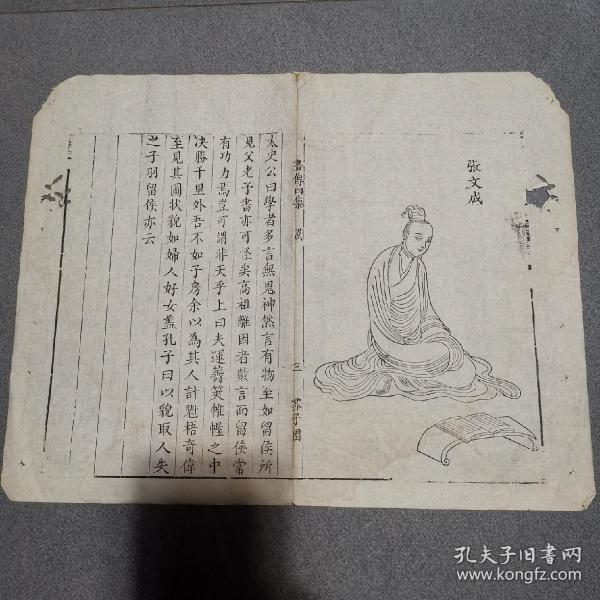 張文成
畫傳四集 漢
三 芥子園
太史公曰學者多言無鬼神然言有物至如留侯所
見父老予書亦可怪矣高祖離困者數言而留侯常
有功力焉豈可謂非天乎上曰夫運籌筴帷幄之中
决勝千里外吾不如子房余以為其人計魁梧奇偉
至見其圖狀貌如婦人好女蓋孔子曰以貌取人失
之子羽留侯亦云
孔夫子旧書网
www.kongfz.com